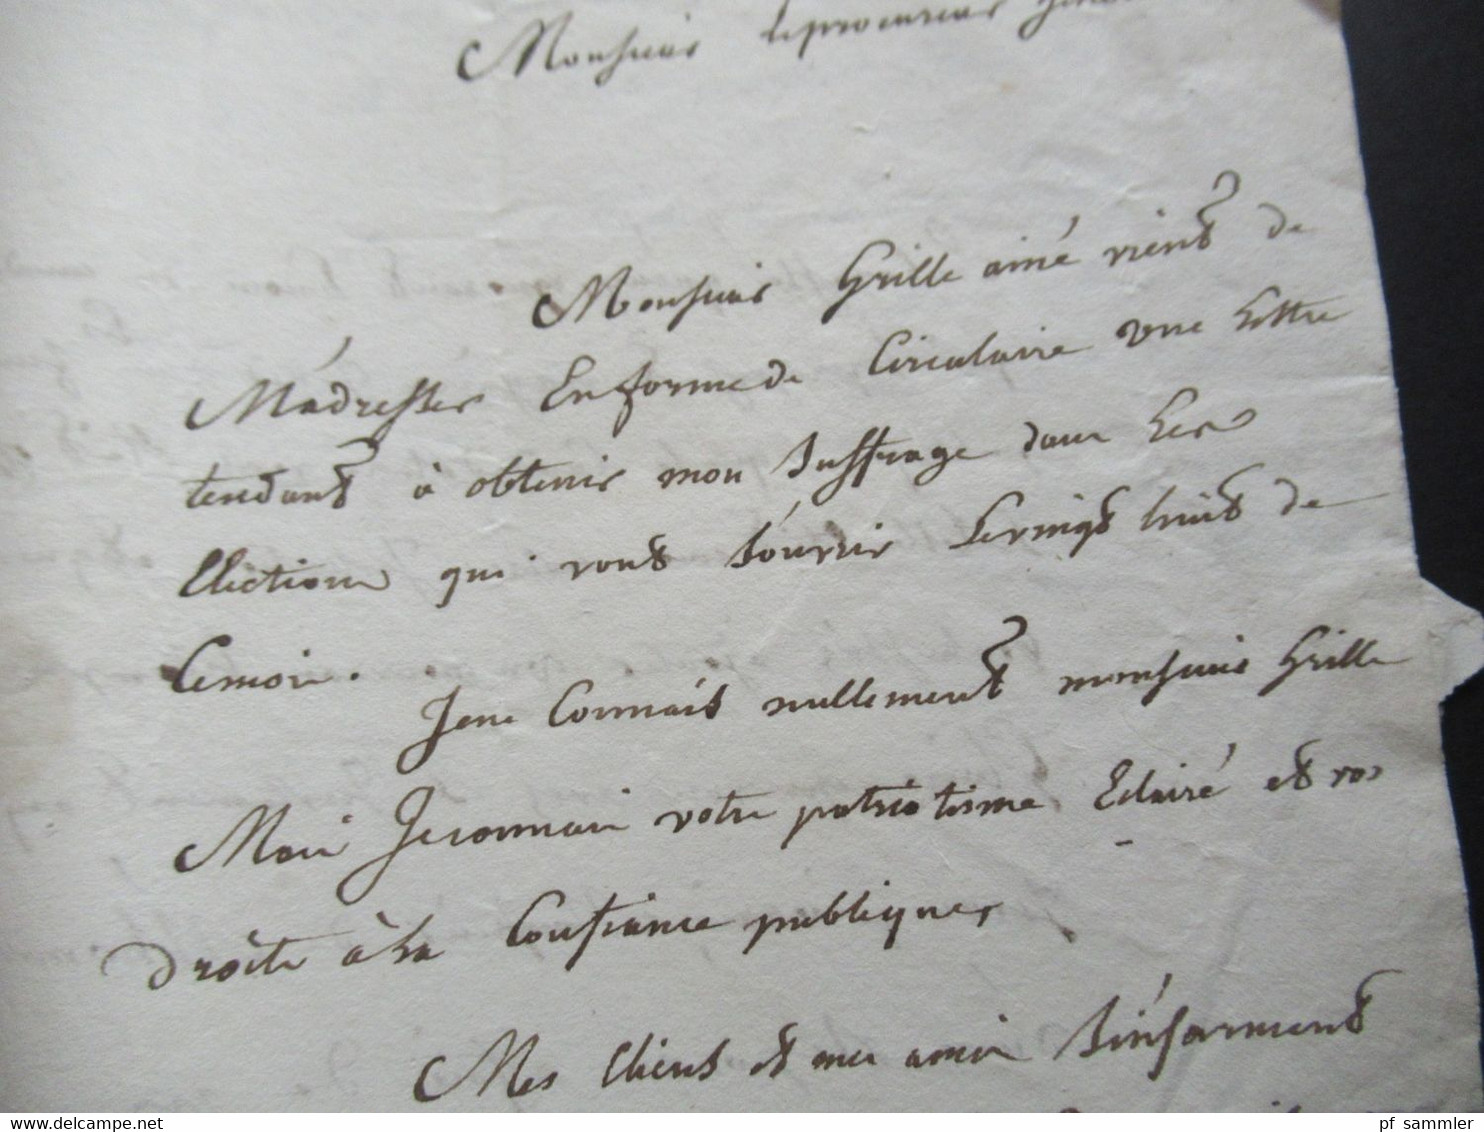 Monsieur le procureur
Monsieur Grille ainé vient de
M'adresser En forme de Circulaire une Lettre
tendant à obtenir mon Suffrage dans Les
Elections qui vont S'ouvrir Le vingt huit de
Ce mois.
Je ne Connais nullement monsieur Grille
Mais Je connais votre patriotisme Eclairé et vos
droits à La Confiance publique,
Mes Clients et mes amis S'informent
pf sammler